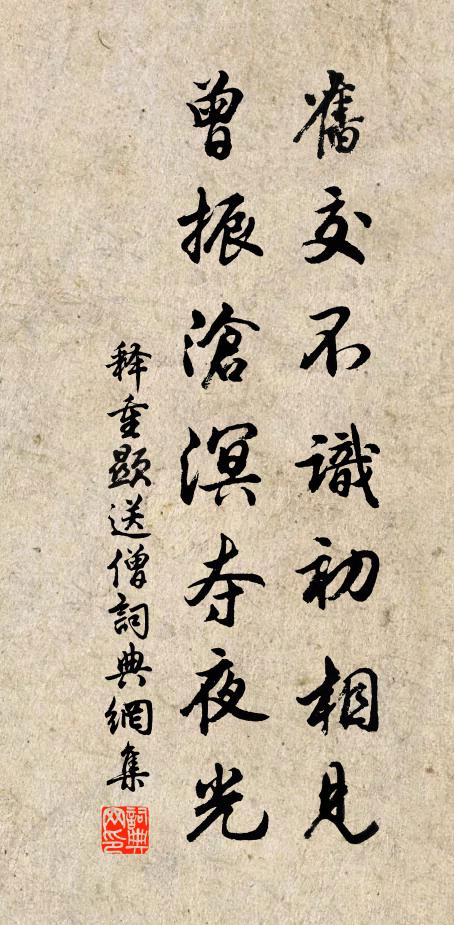 舊交不識初相見
曾振滄溟夺夜光
释重顯送僧詞典網集
詞典网印